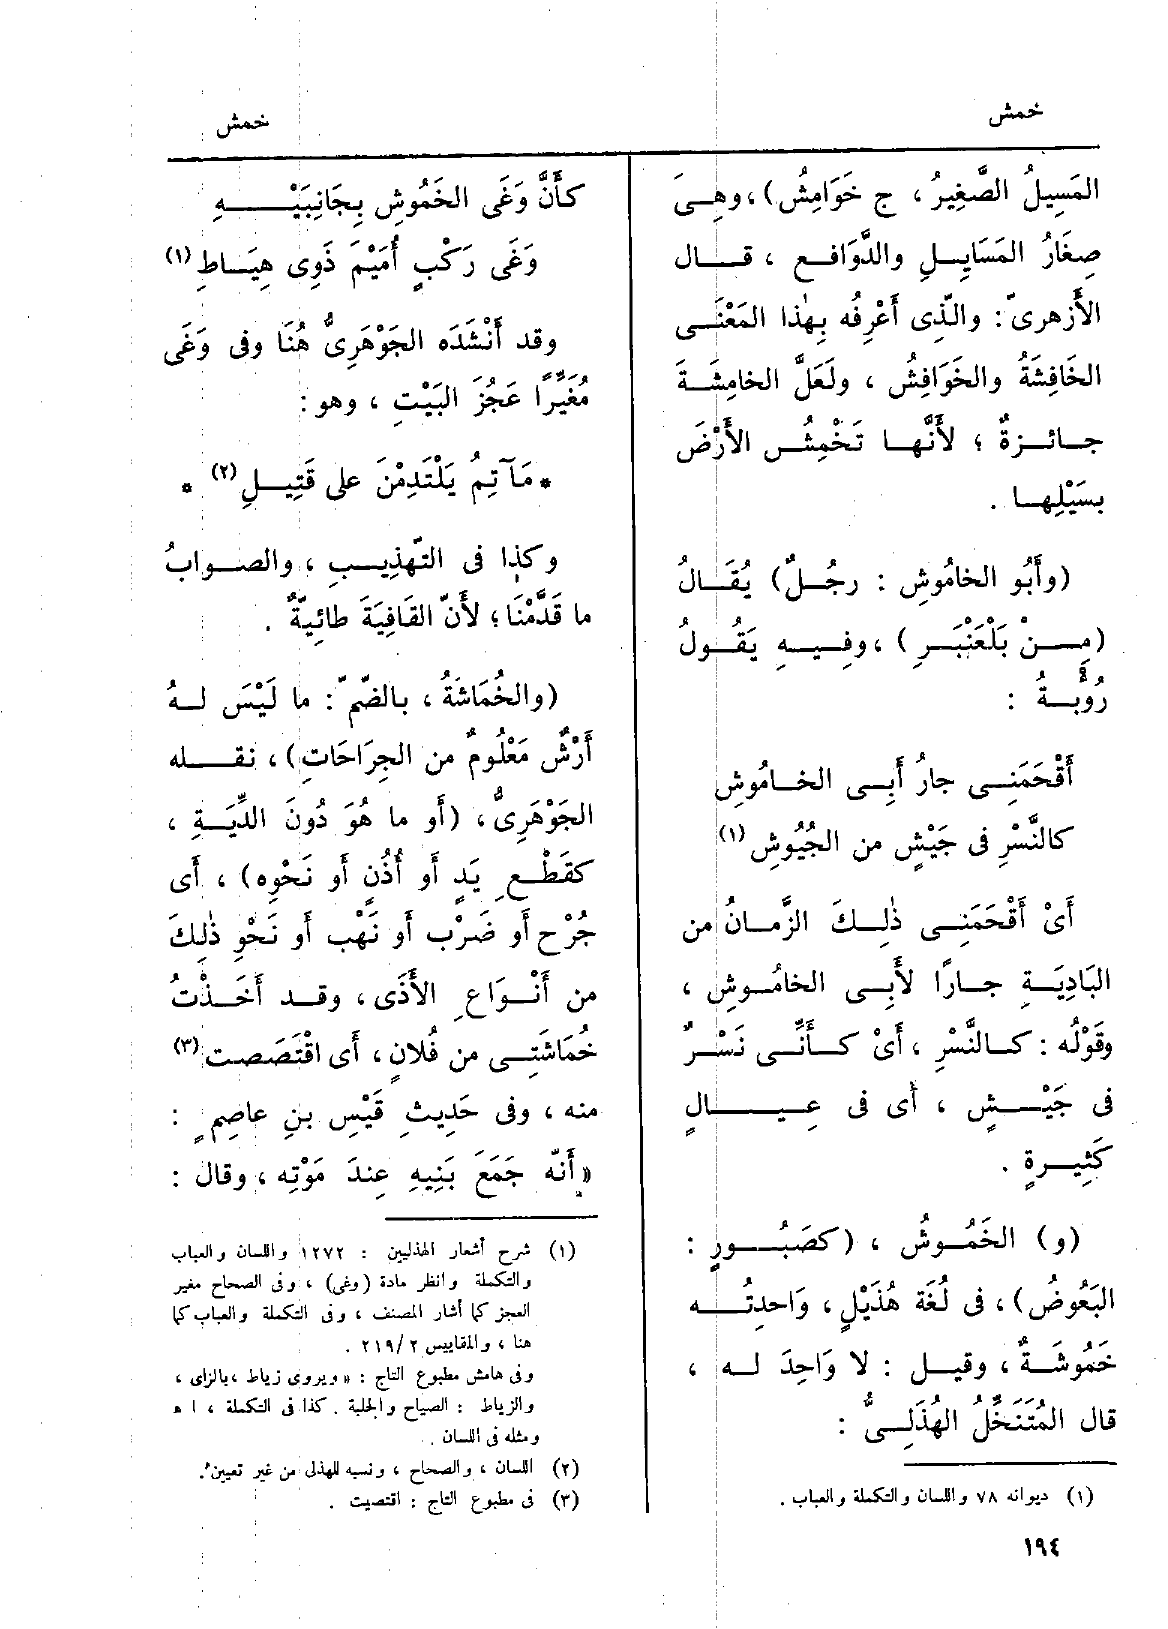 خمش
خمش
المَسِيلُ الصَّغِيرُ ، ج خَوَامِشُ) ، وهِىَ
صِغَارُ المَسَايِلِ والدَّوَافِعِ ، قال
الأَزهرىّ : والَّذِى أَعْرِفُه بِهٰذا المَعْنَى
الخَافِشَةُ والخَوَافِشُ ، ولَعَلَّ الخامِشَةَ
جائزةٌ ؛ لأَنَّها تَخْمِشُ الأَرْضَ
بسَيْلِها .
(وأَبُو الخامُوشِ : رجُلٌ) يُقَالُ
(مِنْ بَلْعَنْبَرِ) ، وفِيهِ يَقُولُ
رُؤبةُ :
أَقْحَمَنِى جارُ أَبِى الخامُوشِ
كالنَّسْرِ فى جَيْشٍ من الجُيُوشِ (١)
أَىْ أَقْحَمَنِى ذٰلِكَ الزَّمانُ من
البَادِيَةِ جارًا لأَبِى الخامُوشِ ،
وقَوْلُه : كالنَّسْرِ ، أَىْ كأَنِّى نَسْرٌ
فى جَيْشٍ ، أَى فى عِيالٍ
كَثِيرةٍ .
(و) الخَمُوشُ ، (كصَبُورٍ :
البَعُوضُ) ، فى لُغَة هُذَيْلٍ ، وَاحِدتُه
خَمُوشَةٌ ، وقيل : لا وَاحِدَ له ،
قال المُتَنَخِّلُ الهُذَلِىُّ :
(١) ديوانه ٧٨ واللسان والتكملة والعباب .
كأَنَّ وَغَى الخَمُوشِ بِجَانِبَيْهِ
وَغَى رَكْبٍ أُمَيْمَ ذَوِى هِيَاطِ (١)
وقد أَنْشَدَه الجَوْهَرِىُّ هُنَا وفى وَغَى
مُغَيِّرًا عَجُزَ البَيْتِ ، وهو :
* مَآتِمُ يَلْتَدِمْنَ على قَتِيلِ (٢) *
وكذا فى التّهْذِيبِ ، والصوابُ
ما قَدَّمْنَا ؛ لأَنّ القَافِيَةَ طائِيَّةٌ .
(والخُمَاشَةُ ، بالضّمّ : ما لَيْسَ لهُ
أَرْشٌ مَعْلُومٌ من الجِرَاحَاتِ) ، نقله
الجَوْهَرِىُّ ، (أَو ما هُوَ دُونَ الدِّيَةِ ،
كقَطْعِ يَدٍ أَو أُذُنٍ أَو نَحْوِه) ، أَى
جُرْحٍ أَو ضَرْبٍ أَو نَهْبٍ أَو نَحْوِ ذٰلِكَ
من أَنْوَاعِ الأَذَى ، وقد أَخَذْتُ
خُمَاشَتِى من فُلانٍ ، أَى اقْتَصَصت (٣)
منه ، وفى حَدِيثِ قَيْسِ بنِ عاصِمٍ :
« أَنّه جَمَعَ بَنِيهِ عِندَ مَوْتِه ، وقال :
(١) شرح أشعار الهذليين : ١٢٧٢ واللسان والعباب
والتكملة وانظر مادة (وغى) ، وفى الصحاح مغير
العجز كما أشار المصنف ، وفى التكملة والعباب كما
هنا ، والمقاييس ٢ / ٢١٩ .
وفى هامش مطبوع التاج : « ويروى زياط ، بالزاى ،
والزياط : الصياح والجلبة . كذا فى التكملة ، ا ه
ومثله فى اللسان .
(٢) اللسان ، والصحاح ، ونسبه للهذلى من غير تعيين .
(٣) فى مطبوع التاج : اقتصيت .
١٩٤